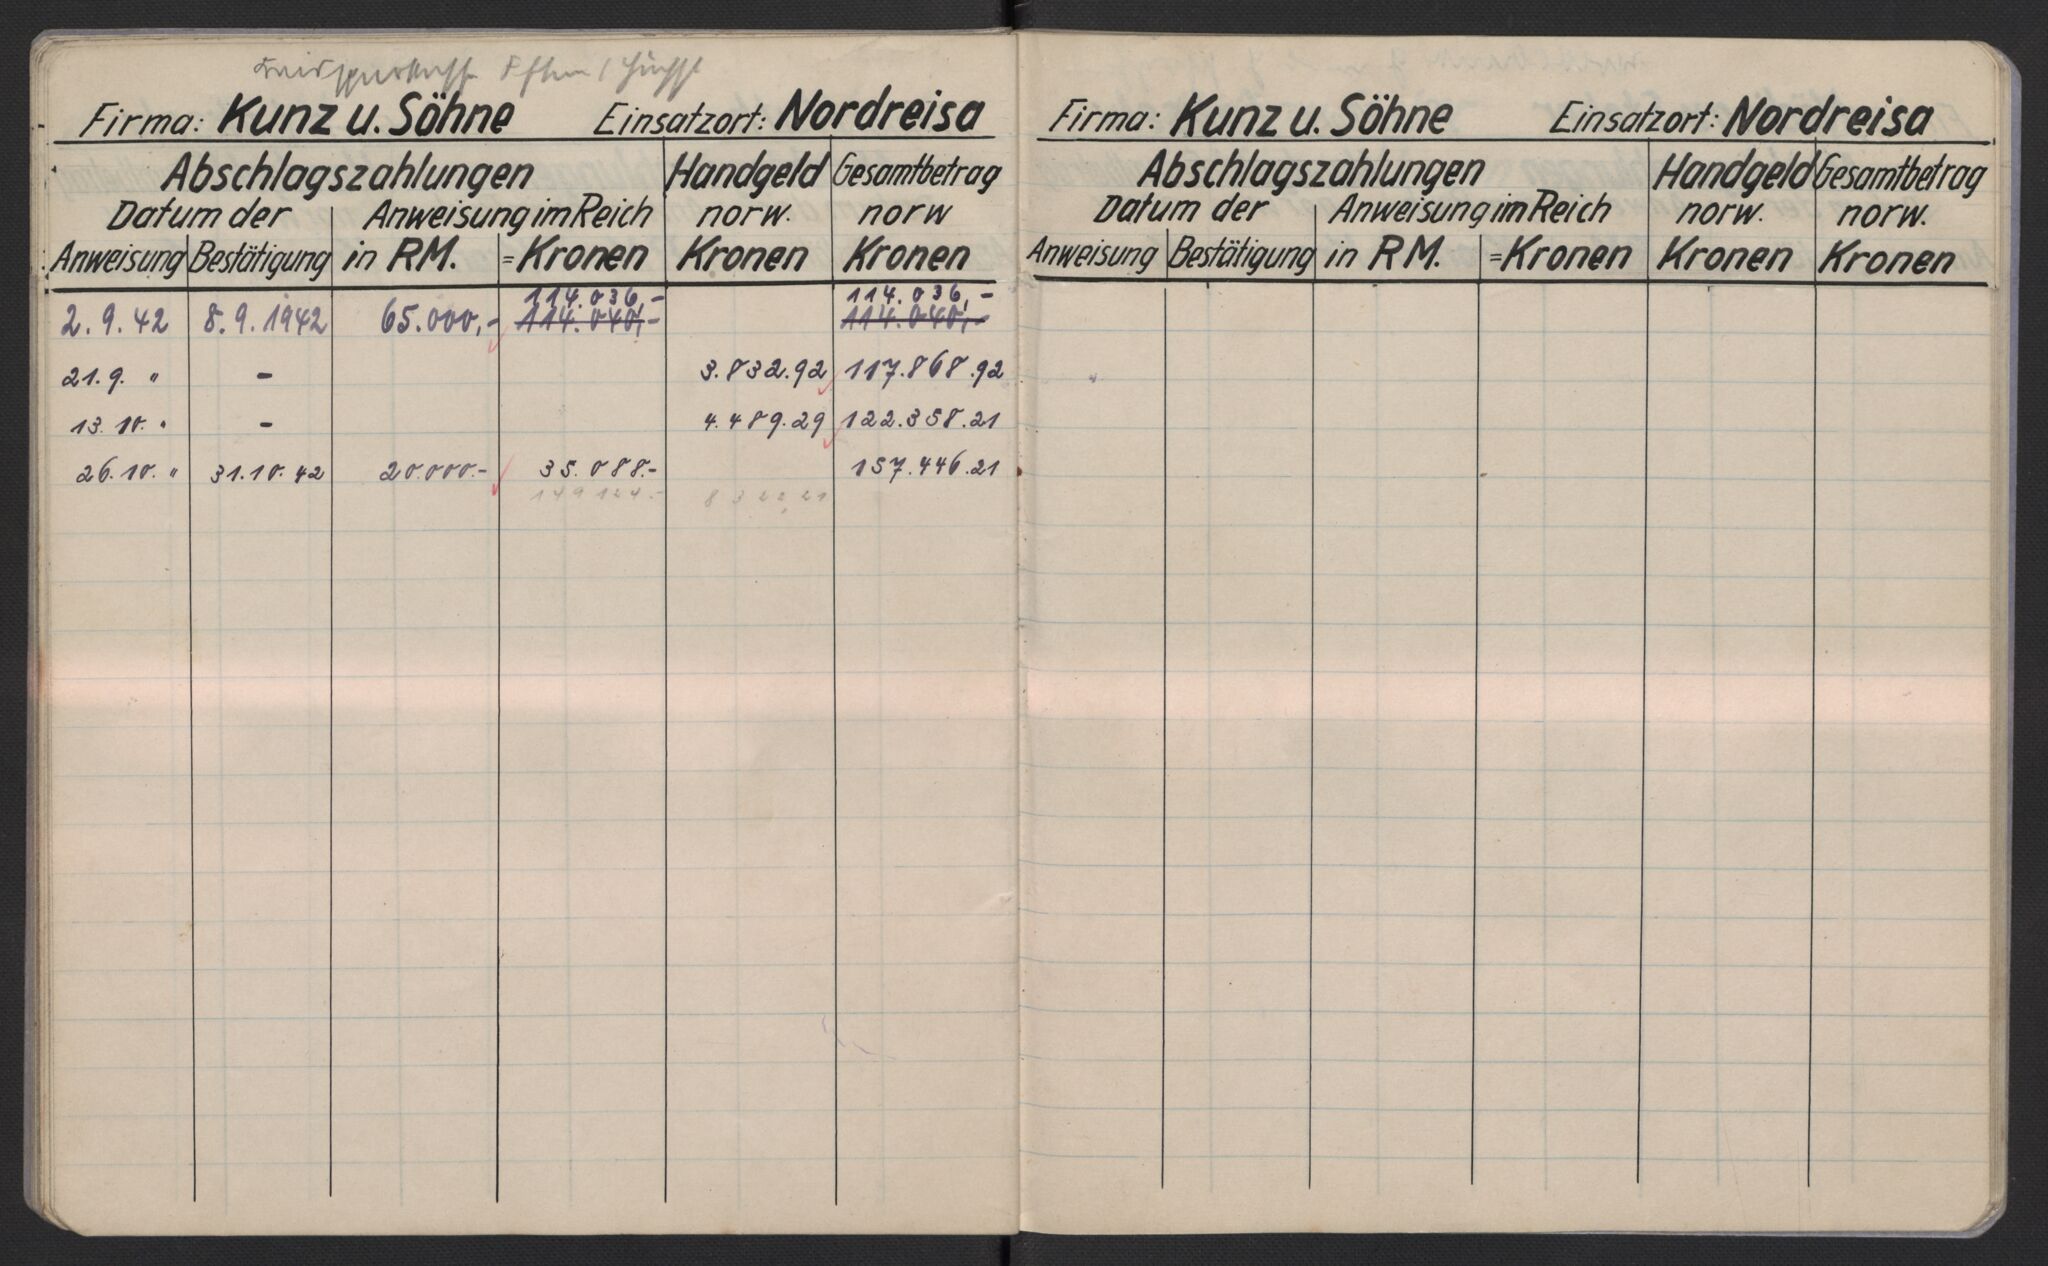 Firma: Kunz u. Söhne Einsatzort: Nordreisa
Abschlagszahlungen Handgeld Gesamtbetrag
Datum der Anweisung im Reich norw. norw
Anweisung Bestätigung in RM. = Kronen Kronen Kronen
114.036,- 114.036,-
2.9.42 8.9.1942 65.000,- 114.040,- 114.040,-
21.9. " - 3.832.92 117.868.92
13.10. " - 4.489.29 122.358.21
26.10. " 31.10.42 20.000.- 35.088.- 157.446.21
149124.- 8322,21
Firma: Kunz u. Söhne Einsatzort: Nordreisa
Abschlagszahlungen Handgeld Gesamtbetrag
Datum der Anweisung im Reich norw. norw.
Anweisung Bestätigung in RM. = Kronen Kronen Kronen